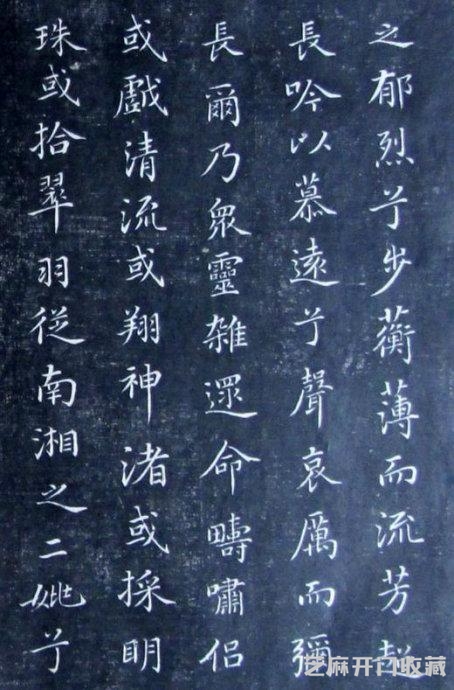 之郁烈兮步蘅薄而流芳超
長吟以慕遠兮聲哀厲而彌
長爾乃眾靈雜遝命疇嘯侶
或戲清流或翔神渚或採眀
珠或拾翠羽從南湘之二妣兮
芝麻开门收藏